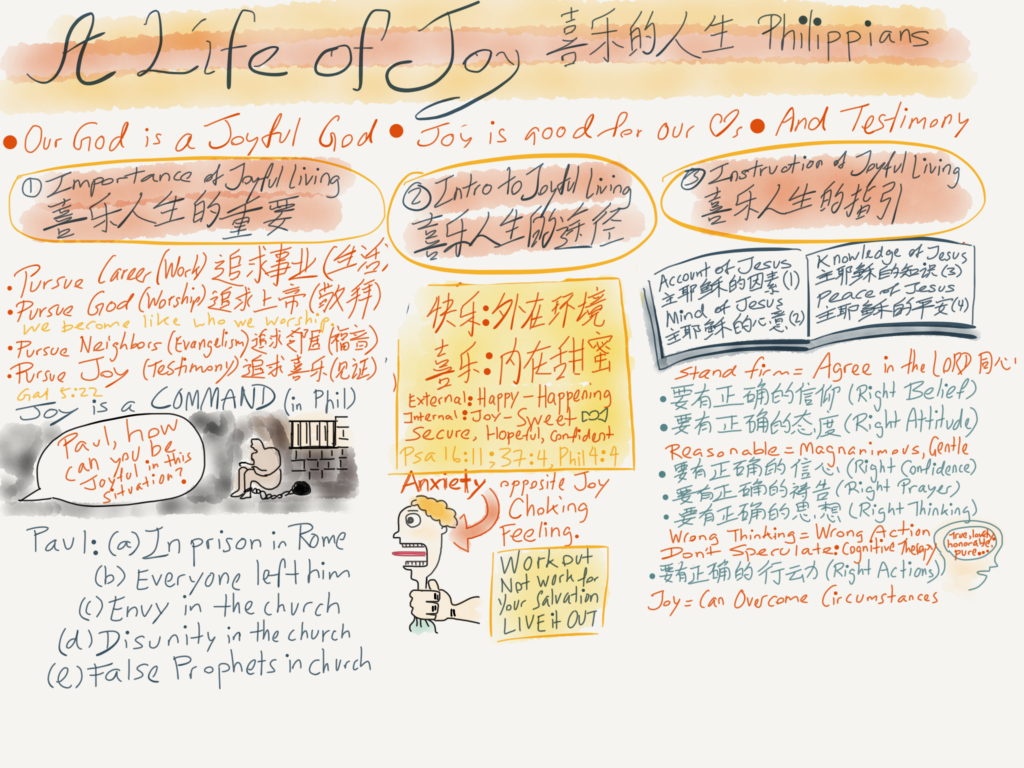 A Life of Joy 喜乐的人生 Philippians
• Our God is a Joyful God • Joy is good for our ♡s • And Testimony
① Importance of Joyful Living
喜乐人生的重要
• Pursue Career (Work) 追求事业 (生活)
• Pursue God (Worship) 追求上帝 (敬拜)
We become like who we worship.
• Pursue Neighbors (Evangelism) 追求邻居 (福音)
• Pursue Joy (Testimony) 追求喜乐 (见证)
Gal 5:22
Joy is a COMMAND (in Phil)
Paul, how
can you be
Joyful in this
situation?
Paul: (a) In prison in Rome
(b) Everyone left him
(c) Envy in the church
(d) Disunity in the church
(e) False Prophets in church
② Intro to Joyful Living
喜乐人生的途径
快乐: 外在环境
喜乐: 内在甜蜜
External: Happy - Happening
Internal: Joy - Sweet
Secure, Hopeful, Confident
Psa 16:11; 37:4, Phil 4:4
Anxiety opposite Joy
Choking
Feeling.
Work out
Not work for
your salvation
LIVE it OUT
③ Instruction of Joyful Living
喜乐人生的指引
Account of Jesus
主耶稣的因素 (1)
Mind of Jesus
主耶稣的心意 (2)
Knowledge of Jesus
主耶稣的知识 (3)
Peace of Jesus
主耶稣的平安 (4)
Stand firm = Agree in the LORD 同心
• 要有正确的信仰 (Right Belief)
• 要有正确的态度 (Right Attitude)
Reasonable = Magnanimous, Gentle
• 要有正确的信心 (Right Confidence)
• 要有正确的祷告 (Right Prayer)
• 要有正确的思想 (Right Thinking)
Wrong Thinking = Wrong Action
Don't Speculate: (Cognitive Therapy)
True, lovely,
honorable,
pure...
• 要有正确的行动 (Right Actions)
Joy = Can Overcome Circumstances